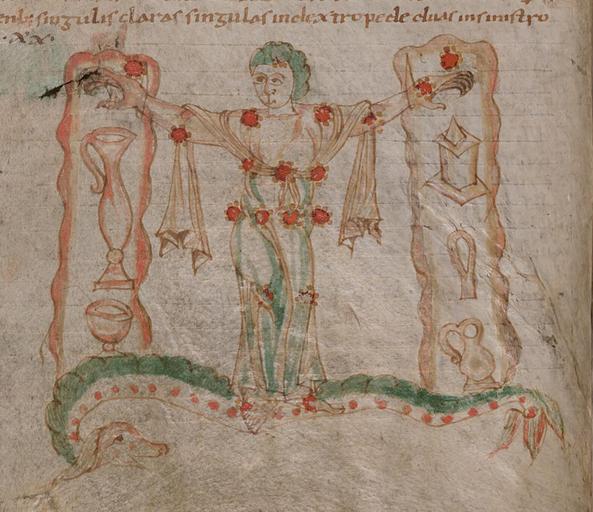 singulis claras singulas indextro pede duas insinistro
·xx·